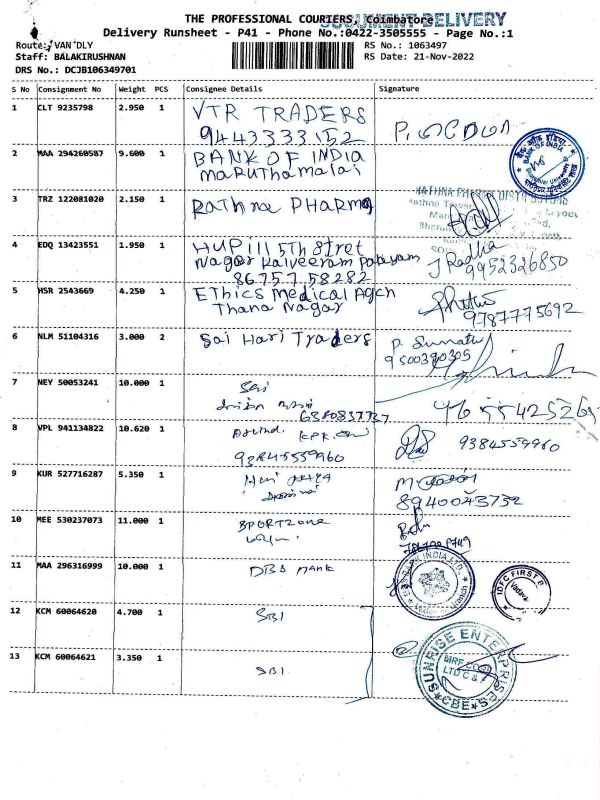 THE PROFESSIONAL COURIERS, Coimbatore
DOCUMENT DELIVERY
Delivery Runsheet - P41 - Phone No.:0422-3505555 - Page No.:1
Route: VAN DLY
RS No.: 1063497
Staff: BALAKIRUSHNAN
RS Date: 21-Nov-2022
DRS No.: DCJB106349701
S No Consignment No Weight PCS Consignee Details Signature
1 CLT 9235798 2.950 1 VTR TRADERS
9443333152
2 MAA 294260587 9.600 1 BANK OF INDIA
MARUTHAMALAI
BANK OF INDIA
3 TRZ 122081020 2.150 1 RATHNA PHARMA
4 EDQ 13423551 1.950 1 HUP III 5TH Stret
Nagar Kalveeram Palayam
86757 58282
J Radha
9952326850
5 HSR 2543669 4.250 1 Ethics Medical Agcn
Thana Nagar
9787775692
6 NLM 51104316 3.000 2 Sai Hari Traders
P. Sumathi
9500390305
7 NEY 50053241 10.000 1
6380837737
9655425265
8 VPL 941134822 10.620 1 Arvind
9384559960
9384559960
9 KUR 527716287 5.350 1
8940043732
10 MEE 530237073 11.000 1 SPORTZONE
11 MAA 296316999 10.000 1 DBS Bank
BANK INDIA LTD
IDFC FIRST B
12 KCM 60064620 4.700 1 SBI
13 KCM 60064621 3.350 1 SBI
SUNRISE ENTERPRISES
CBE